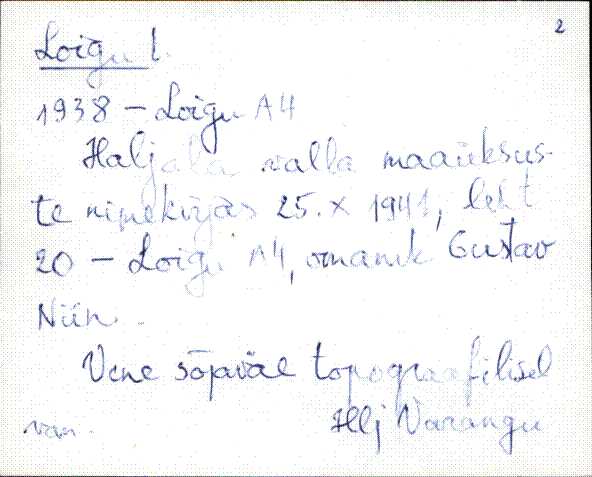 2
Loigu l.
1938 – Loigu A4
Haljala valla maaüksus-
te nimekirjas 25.X 1941, leht
20 – Loigu A4, omanik Gustav
Niin.
Vene sõjaväe topograafilisel
van. Hlj Varangu